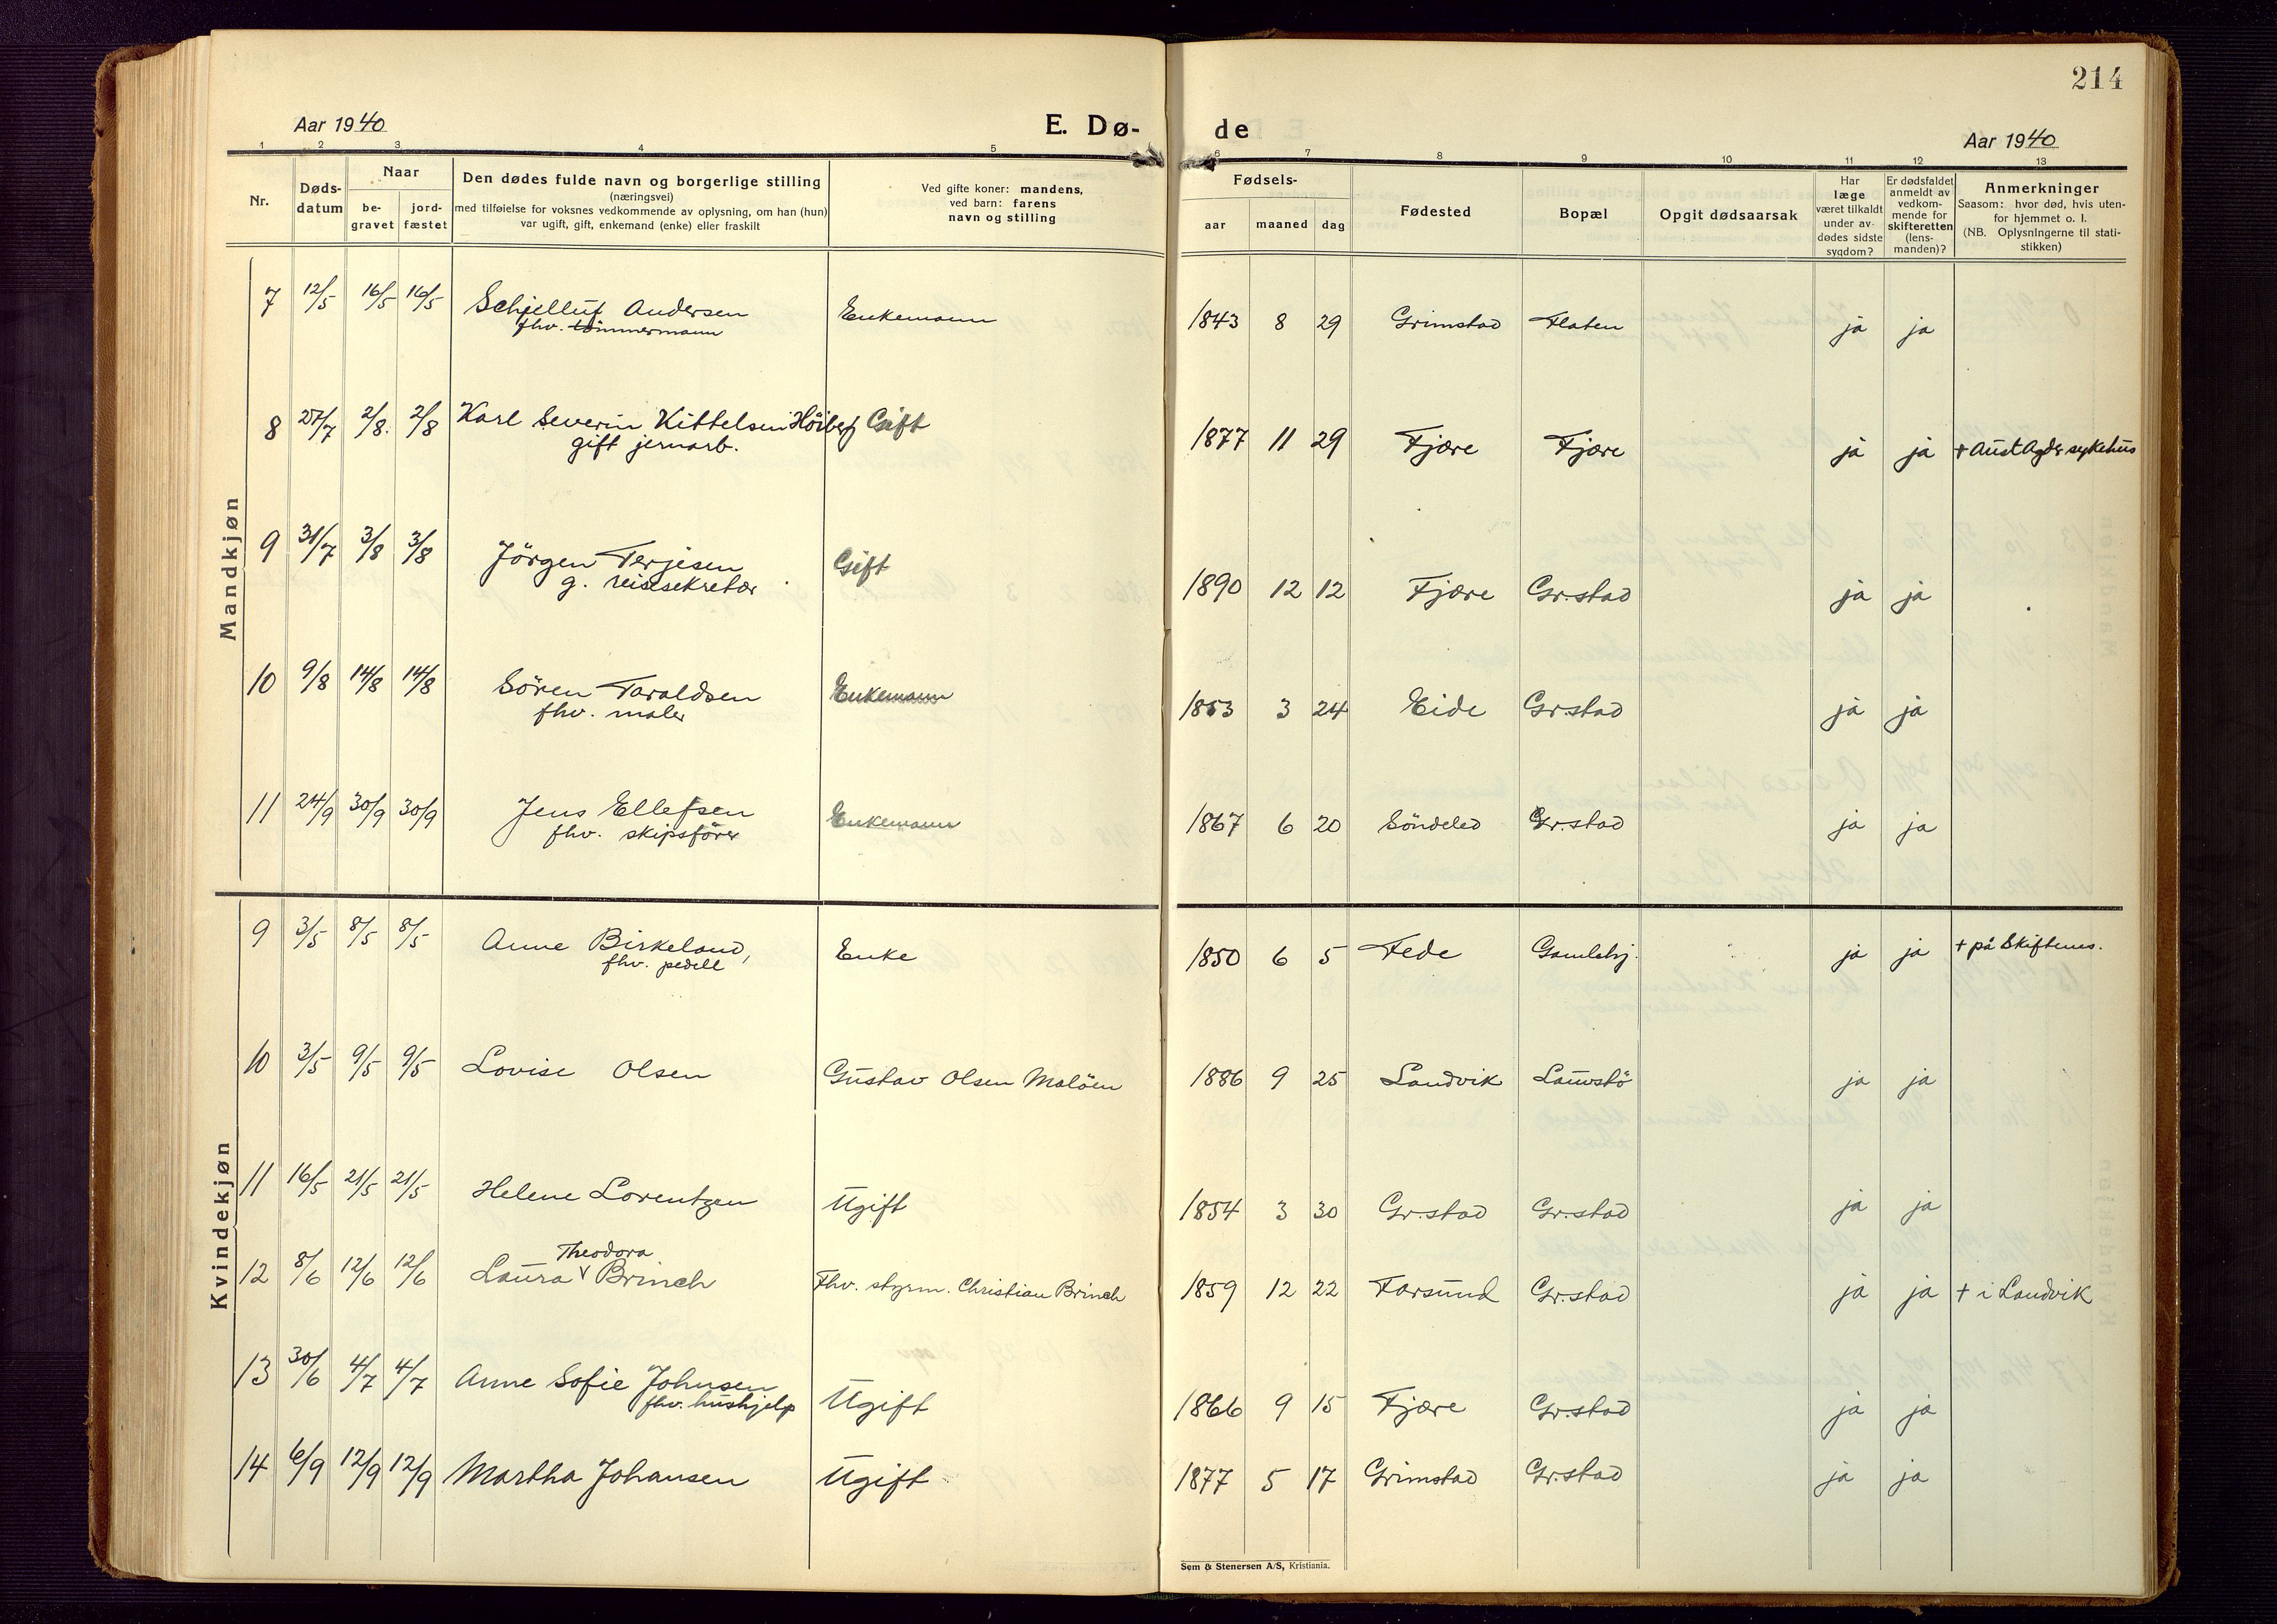 214
Aar 1940
E. Dø-
de
Aar 1940
1 2 3 4 5 6 7 8 9 10 11 12 13
Nr.
Døds-
datum
Naar
be-
gravet
jord-
fæstet
Den dødes fulde navn og borgerlige stilling
(næringsvei)
med tilføielse for voksnes vedkommende av oplysning, om han (hun)
var ugift, gift, enkemand (enke) eller fraskilt
Ved gifte koner: mandens,
ved barn: farens
navn og stilling
Fødsels-
aar maaned dag
Fødested
Bopæl
Opgit dødsaarsak
Har
læge
været tilkaldt
under av-
dødes sidste
sygdom?
Er dødsfaldet
anmeldt av
vedkom-
mende for
skifteretten
(lens-
manden)?
Anmerkninger
Saasom: hvor død, hvis uten-
for hjemmet o. l.
(NB. Oplysningerne til stati-
stikken)
Mandkjøn
7 12/5 16/5 16/5 Schielluf Andersen Enkemann 1843 8 29 Grimstad Flaten ja ja
fhv. tömmermann
8 27/7 2/8. 2/8 Karl Severin Kittelsen Höiberg Gift 1877 11 29 Fjære Fjære ja ja + Aust Agder sykehus
gift jernarb.
9 31/7 3/8 3/8 Jörgen Terjesen Gift 1890 12 12 Fjære Gr.stad ja ja
g. reisesekretær
10 9/8 14/8 14/8 Sören Taraldsen Enkemann 1853 3 24 Eide Gr.stad ja ja
fhv. maler
11 24/9 30/9 30/9 Jens Ellefsen Enkemann 1867 6 20 Söndeled Gr.stad ja ja
fhv. skipsförer
Kvindekjøn
9 3/5 8/5 8/5 Anne Birkeland, Enke 1850 6 5 Fede Gamlehj. ja ja + på Skiftenes.
fhv. pedell
10 3/5 9/5 9/5 Lovise Olsen Gustav Olsen Malöen 1886 9 25 Landvik Lauvstö ja ja
11 16/5 21/5 21/5 Helene Lorentzen Ugift 1854 3 30 Gr.stad Gr.stad ja ja
Theodora
12 8/6 12/6 12/6 Laura Brinch Fhv. styrm. Christian Brinch 1859 12 22 Farsund Gr.stad ja ja + i Landvik
13 30/6 4/7 4/7 Anne Sofie Johnsen Ugift 1866 9 15 Fjære Gr.stad ja ja
fhv. hushjelp
14 6/9 12/9 12/9 Martha Johansen Ugift 1877 5 17 Grimstad Gr.stad ja ja
Sem & Stenersen A/S, Kristiania.